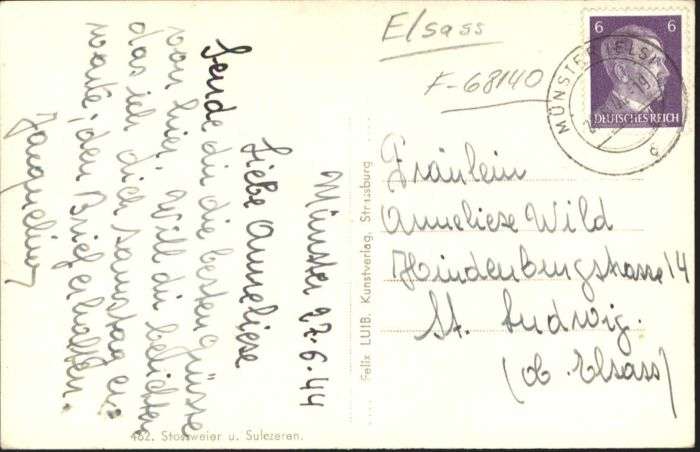 Elsass
F-68140
6 6
DEUTSCHES REICH
MÜNSTER (ELS
Münster 27.6.44
Liebe Anneliese
Sende dir die besten Grüsse
von hier. Will dir berichten
das ich dich Samstag er-
warte, den Brief erhalten.
Jacqueline
Felix LUIB, Kunstverlag, Strassburg
Fräulein
Anneliese Wild
Hindenburgstrasse 14
St. Ludwig.
(ob. Elsass)
462. Stossweier u. Sulezeren.